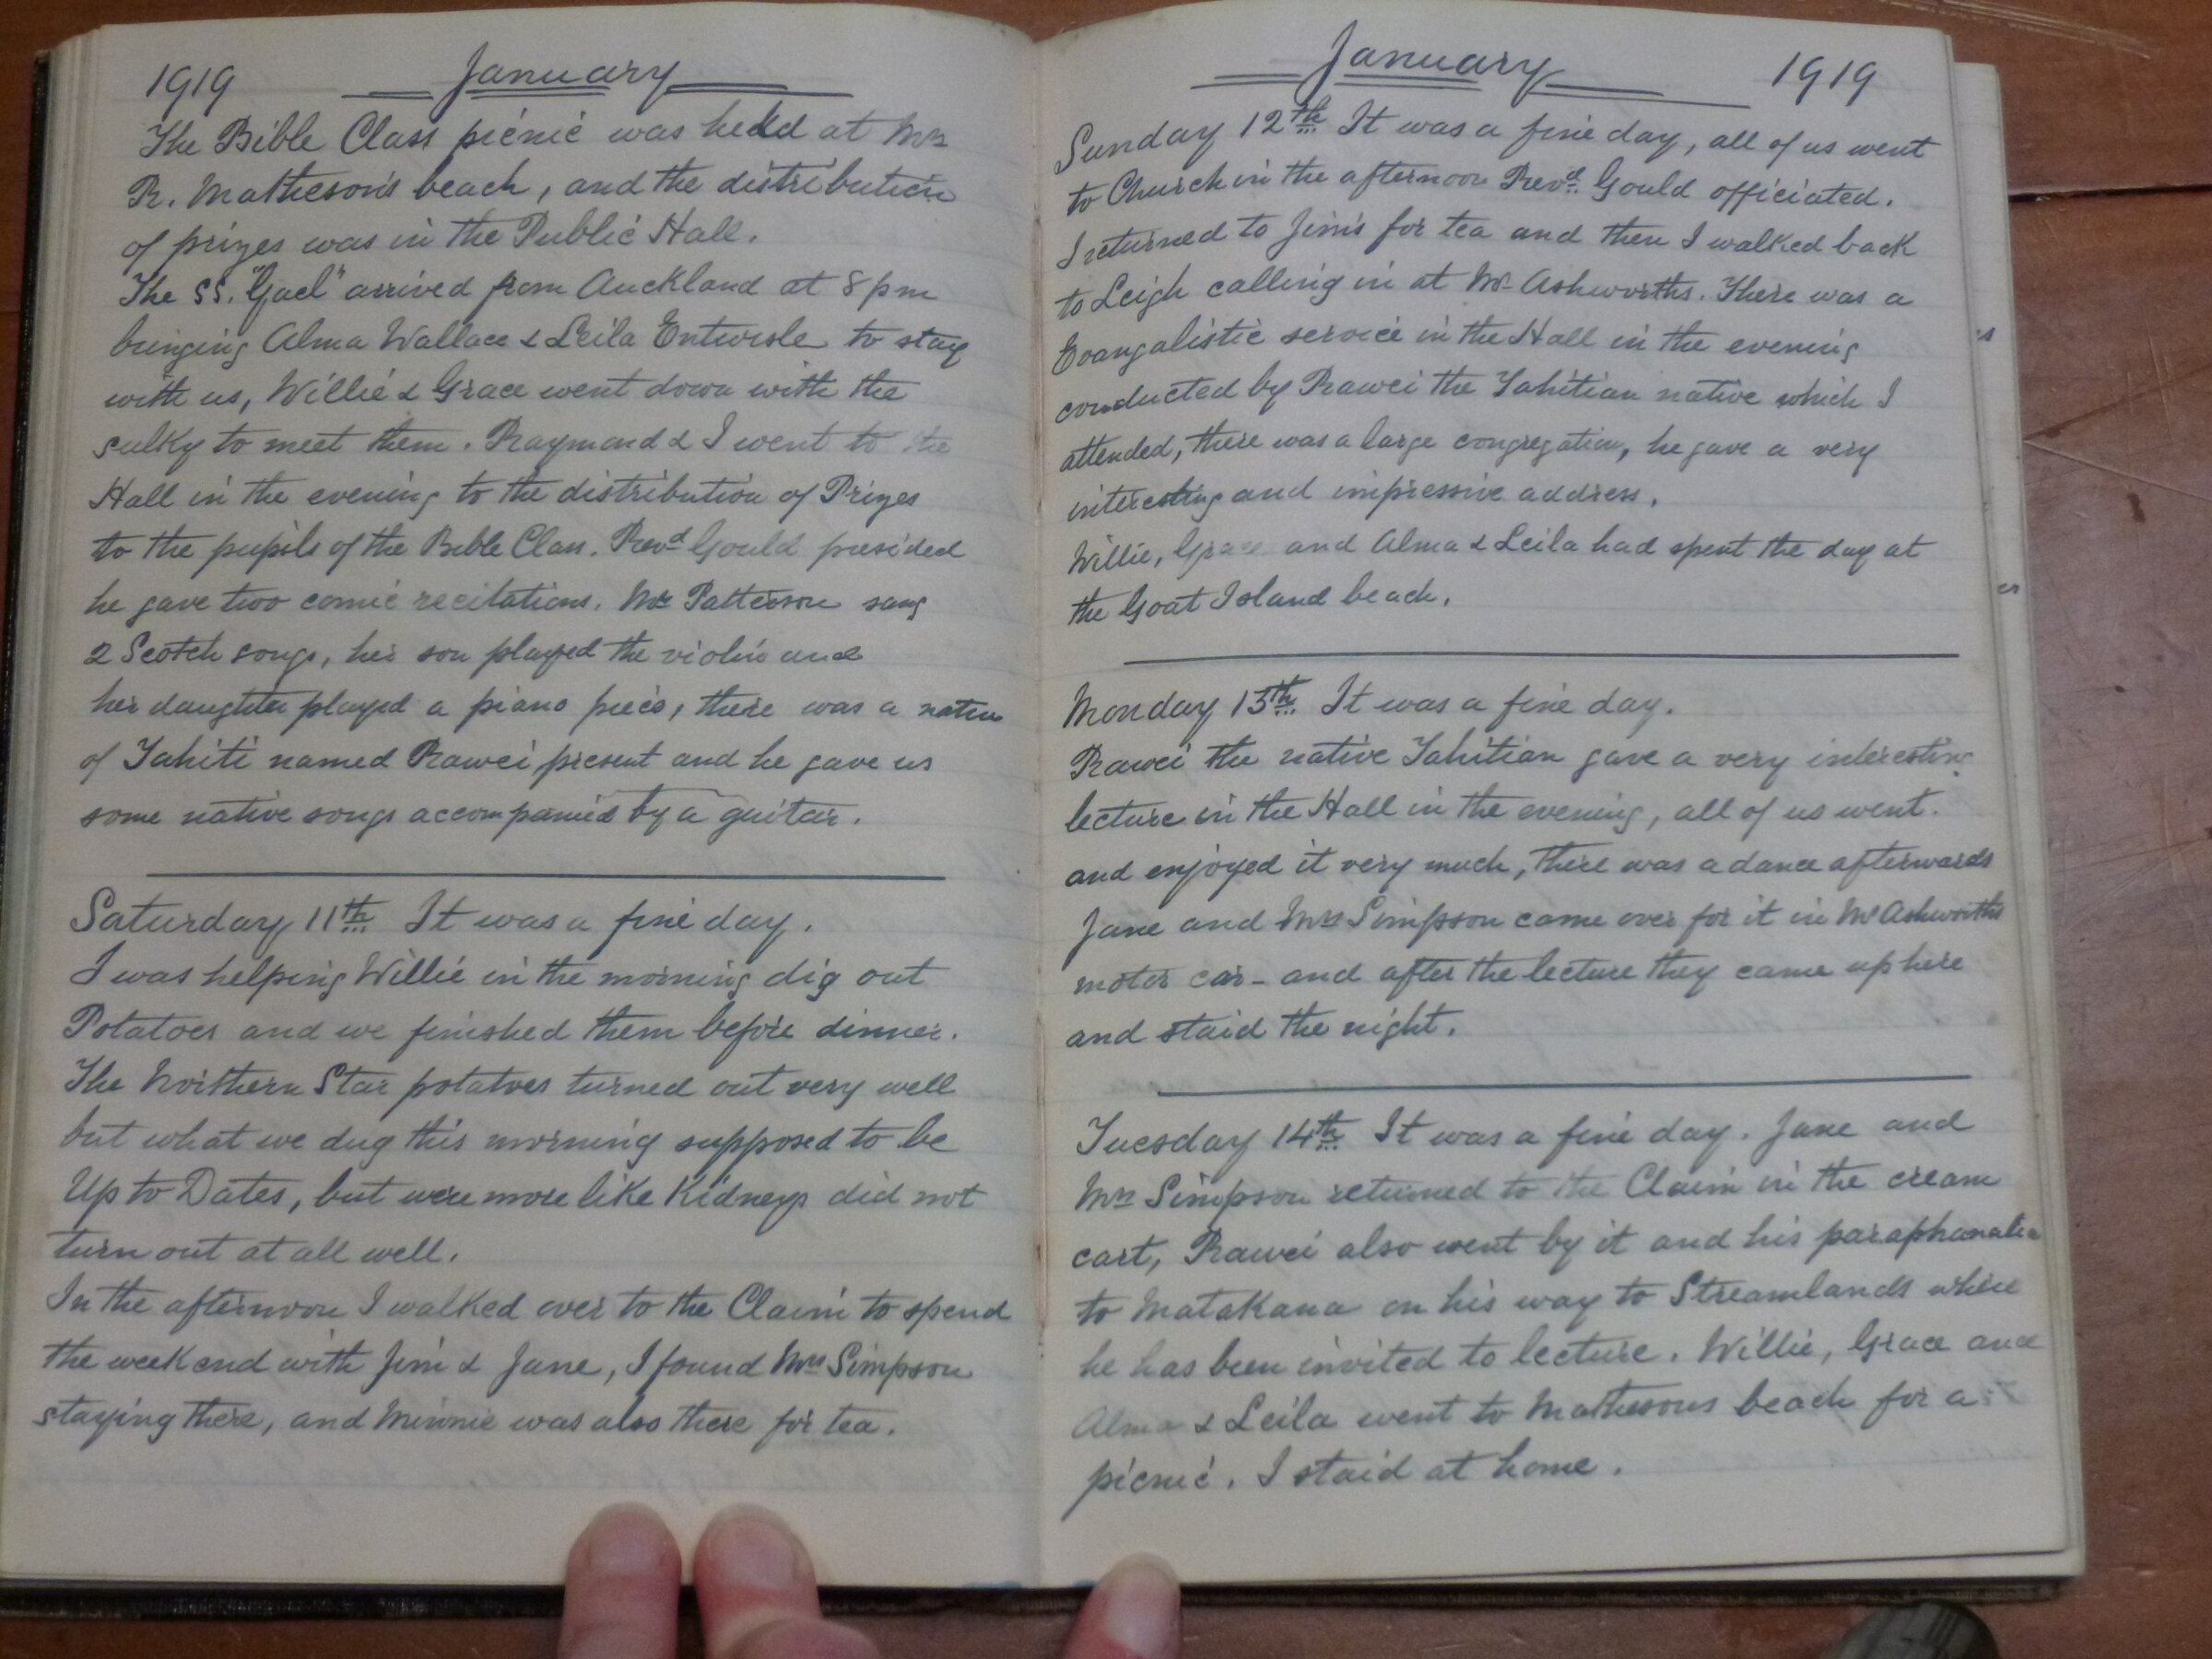 1919 January
The Bible Class picnic was held at Mrs
R. Matheson's beach, and the distribution
of prizes was in the Public Hall.
The SS. "Gael" arrived from Auckland at 8 pm
bringing Alma Wallace & Leila Entwisle to stay
with us, Willie & Grace went down with the
sulky to meet them. Raymond & I went to the
Hall in the evening to the distribution of Prizes
to the pupils of the Bible Class. Revd Gould presided
he gave two comic recitations. Mrs Patterson sang
2 Scotch songs, her son played the violin and
her daughter played a piano piece, there was a native
of Tahiti named Rawei present and he gave us
some native songs accompanied by a guitar.
Saturday 11th It was a fine day.
I was helping Willie in the morning dig out
Potatoes and we finished them before dinner.
The Northern Star potatoes turned out very well
but what we dug this morning supposed to be
Up to Dates, but were more like Kidneys did not
turn out at all well.
In the afternoon I walked over to the Claim to spend
the weekend with Jim & Jane, I found Mrs Simpson
staying there, and Minnie was also there for tea.
January 1919
Sunday 12th It was a fine day, all of us went
to Church in the afternoon Revd Gould officiated.
I returned to Jim's for tea and then I walked back
to Leigh calling in at Mr Ashworths. There was a
Evangalistic service in the Hall in the evening
conducted by Rawei the Tahitian native which I
attended, there was a large congregation, he gave a very
interesting and impressive address.
Willie, Grace and Alma & Leila had spent the day at
the Goat Island beach.
Monday 13th It was a fine day.
Rawei the native Tahitian gave a very interesting
lecture in the Hall in the evening, all of us went.
and enjoyed it very much, there was a dance afterwards
Jane and Mrs Simpson came over for it in Mr Ashworths
motor car - and after the lecture they came up here
and staid the night.
Tuesday 14th It was a fine day. Jane and
Mrs Simpson returned to the Claim in the cream
cart, Rawei also went by it and his paraphanalia
to Matakana on his way to Streamlands where
he has been invited to lecture. Willie, Grace and
Alma & Leila went to Mathesons beach for a
picnic. I staid at home.